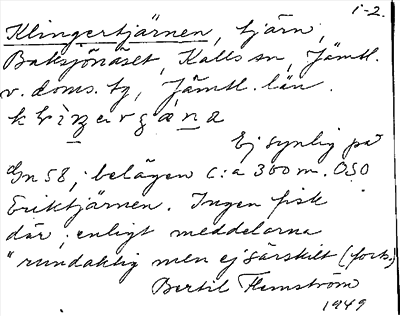 1-2.
Klingertjärnen, tjärn,
Baksjönäset, Kalls sn, Jämtl.
v. doms. tg, Jämtl. län.
Ej synlig på
Gn 58, belägen c:a 300 m. OSO
Eriktjärnen. Ingen fisk
där, enligt meddelarna
"rundaktig men ej särskilt (fork.)
Bertil Flemström
1949